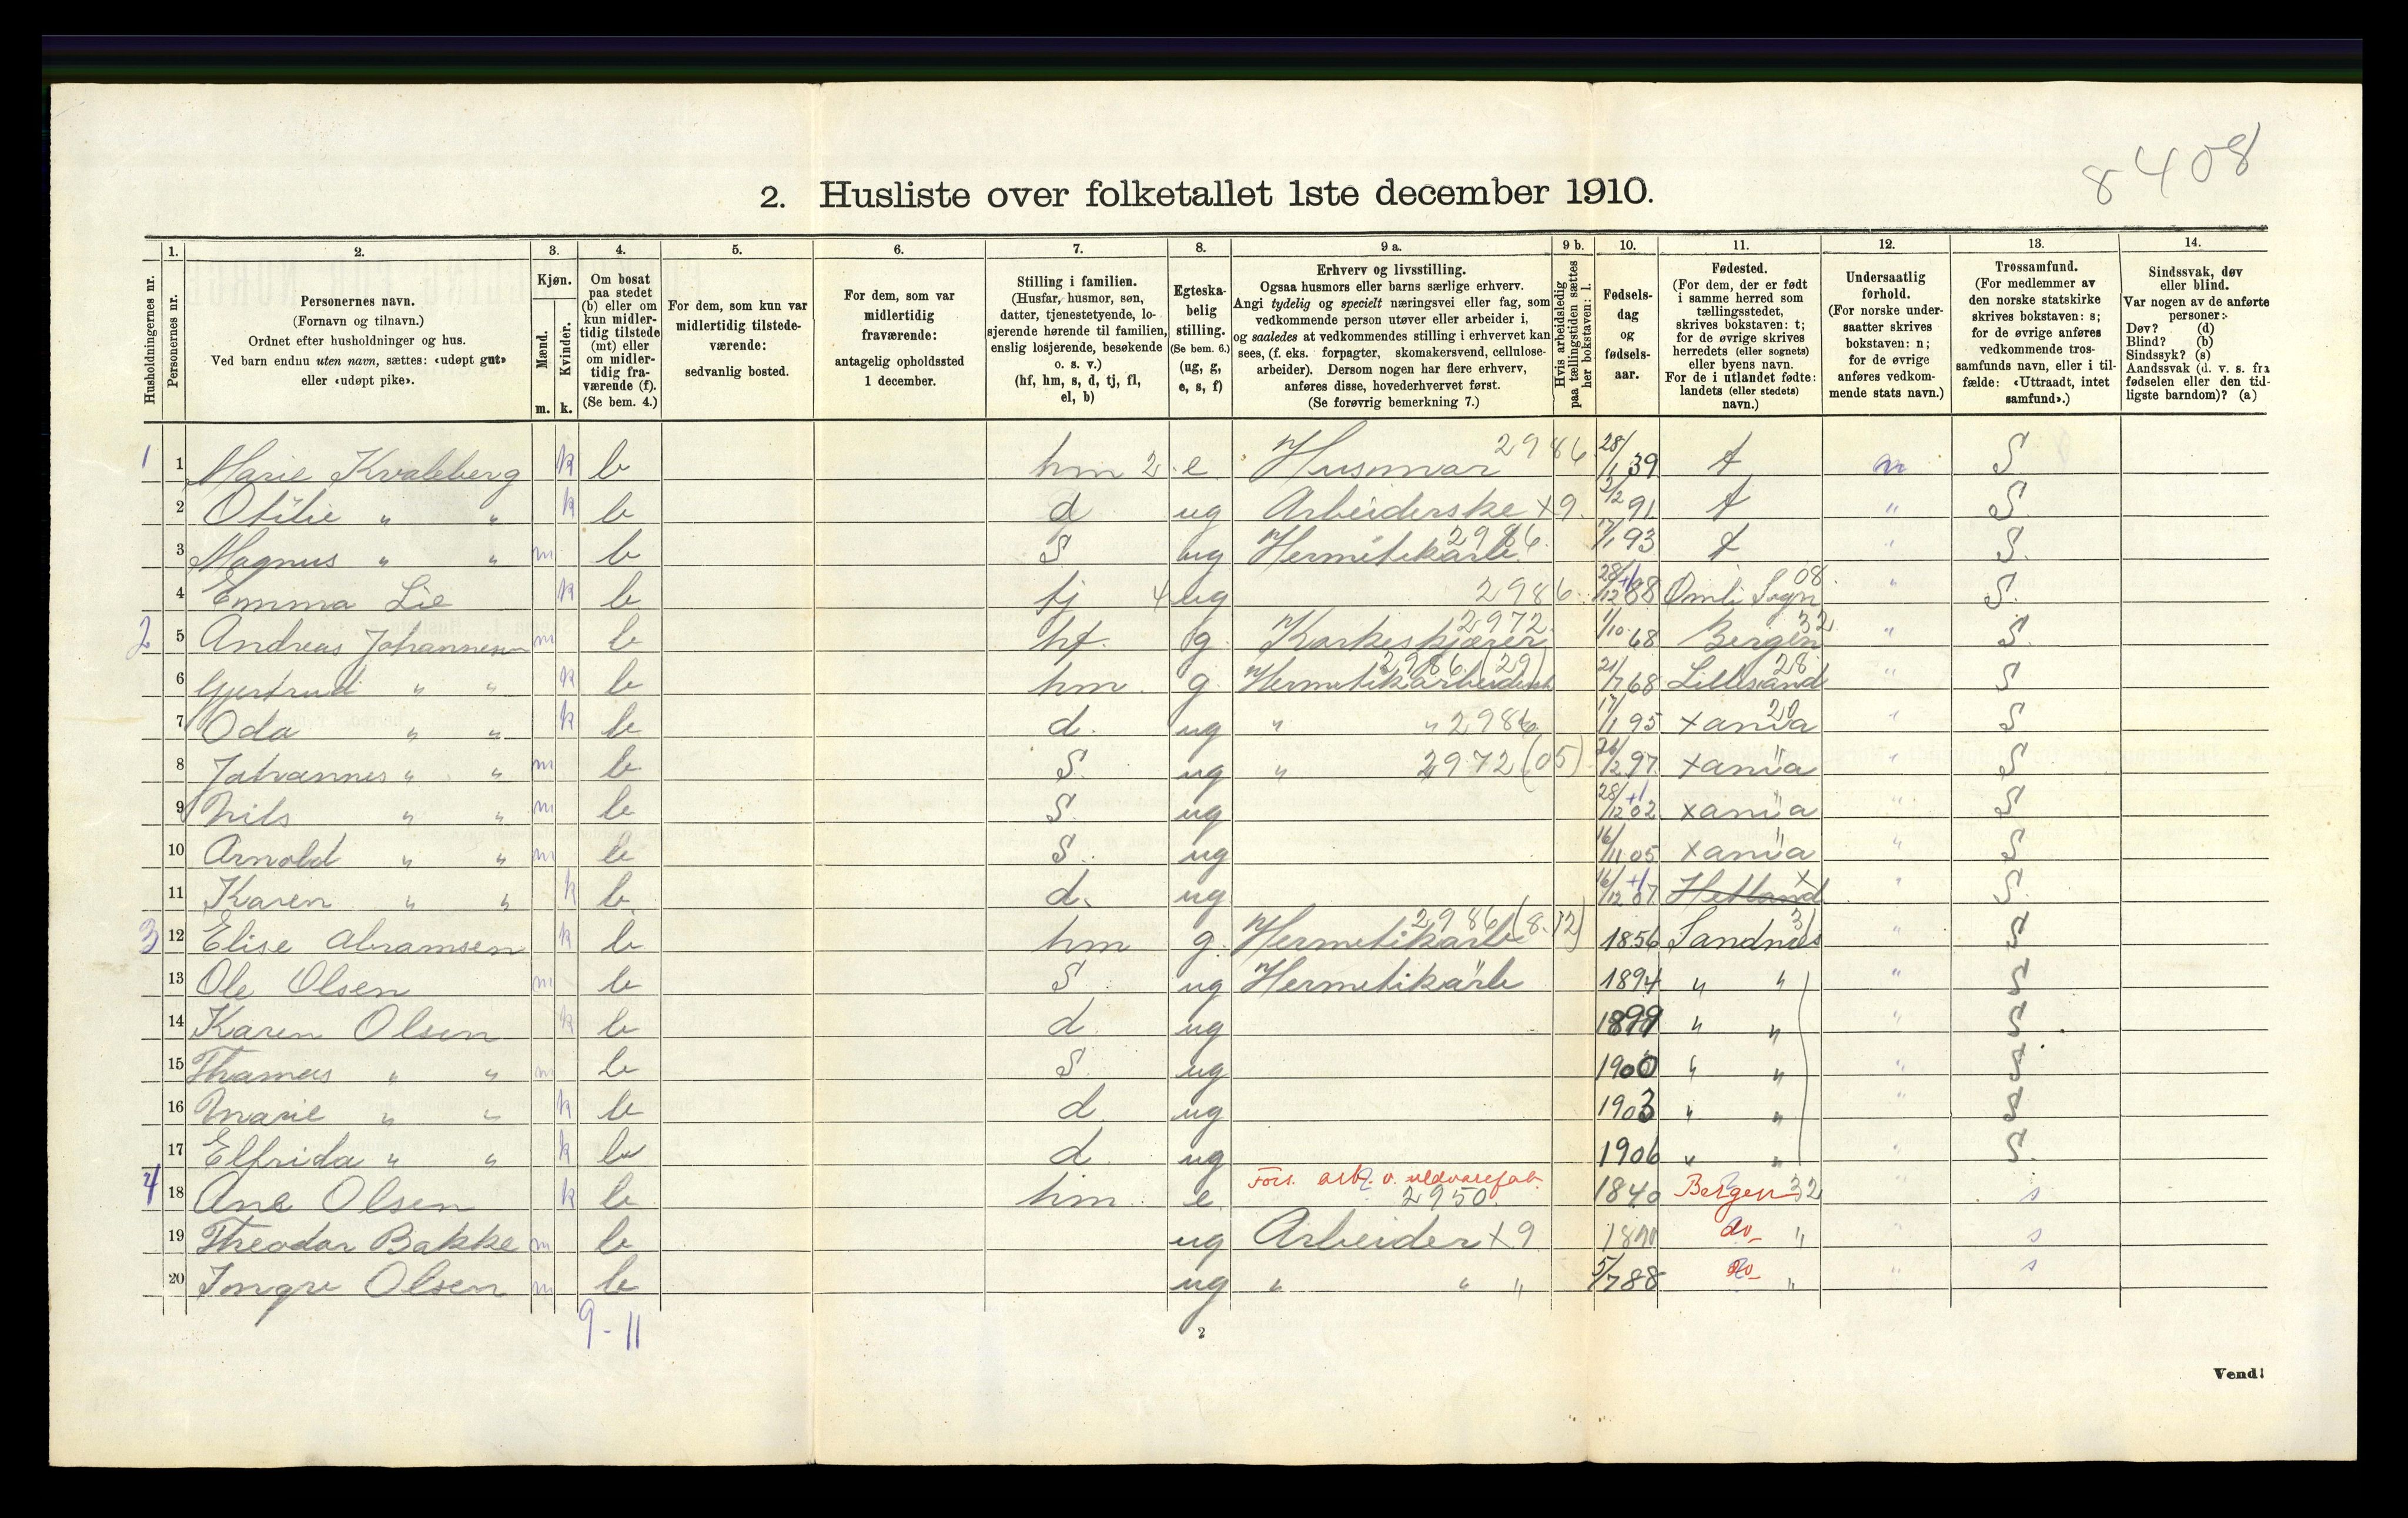 8408
2. Husliste over folketallet 1ste december 1910.
Husholdningernes nr.
1.
Personernes nr.
2.
Personernes navn.
(Fornavn og tilnavn.)
Ordnet efter husholdninger og hus.
Ved barn endnu uten navn, sættes: «udøpt gut»
eller «udøpt pike».
3.
Kjøn.
Mænd.
Kvinder.
m. k.
4.
Om bosat
paa stedet
(b) eller om
kun midler-
tidig tilstede
(mt) eller
om midler-
tidig fra-
værende (f).
(Se bem. 4.)
5.
For dem, som kun var
midlertidig tilstede-
værende:
sedvanlig bosted.
6.
For dem, som var
midlertidig
fraværende:
antagelig opholdssted
1 december.
7.
Stilling i familien.
(Husfar, husmor, søn,
datter, tjenestetyende, lo-
sjerende hørende til familien,
enslig losjerende, besøkende
o. s. v.)
(hf, hm, s, d, tj, fl,
el, b)
8.
Egteska-
belig
stilling.
(Se bem. 6.)
(ug, g,
e, s, f)
9 a.
Erhverv og livsstilling.
Ogsaa husmors eller barns særlige erhverv.
Angi tydelig og specielt næringsvei eller fag, som
vedkommende person utøver eller arbeider i,
og saaledes at vedkommendes stilling i erhvervet kan
sees, (f. eks. forpagter, skomakersvend, cellulose-
arbeider). Dersom nogen har flere erhverv,
anføres disse, hovederhvervet først.
(Se forøvrig bemerkning 7.)
9 b.
Hvis arbeidsledig
paa tællingstiden sættes
her bokstaven: l.
10.
Fødsels-
dag
og
fødsels-
aar.
11.
Fødested.
(For dem, der er født
i samme herred som
tællingsstedet,
skrives bokstaven: t;
for de øvrige skrives
herredets (eller sognets)
eller byens navn.
For de i utlandet fødte:
landets (eller stedets)
navn.)
12.
Undersaatlig
forhold.
(For norske under-
saatter skrives
bokstaven: n;
for de øvrige
anføres vedkom-
mende stats navn.)
13.
Trossamfund.
(For medlemmer av
den norske statskirke
skrives bokstaven: s;
for de øvrige anføres
vedkommende tros-
samfunds navn, eller i til-
fælde: «Uttraadt, intet
samfund».)
14.
Sindssvak, døv
eller blind.
Var nogen av de anførte
personer:
Døv? (d)
Blind? (b)
Sindssyk? (s)
Aandssvak (d. v. s. fra
fødselen eller den tid-
ligste barndom)? (a)
1 1 Marie Kvaleberg k b hm 2 e Husmor 2986 28/1 39 t n S
2 Otilie " " k b d ug Arbeiderske x9 91 t " S
3 Magnus " " m b S ug Hermetikarb. 2986 93 t " S
4 Emma Lie k b tj 4 ug 2986 28/12 88 Omli Sogn 08 " S
2 5 Andreas Johannesen m b hf. g. Korkeskjærer 2972 1/10 68 Bergen 32 " S
6 Gjertrud " " k b hm. g. Hermetikarbeidersk 2986 (29) 21/7 68 Lillesand 28 " S
7 Oda " " k b d. ug " " 2986 17/1 95 xania 20 " S
8 Johannes " " m b S. ug " 2972 (05) 26/2 97 xania " " S
9 Nils " " m b S. ug 28/12 02 +1 xania " " S
10 Arnold " " m b S. ug 16/11 05 xania " " S
11 Karen " " k b d. ug 16/12 07 +1 Hetland x " S
3 12 Elise Abramsen k b hm g. Hermetikarb 2986 (8.12) 1856 Sandnes 31 " S
13 Ole Olsen m b S ug Hermetikarb " 1894 " " " S
14 Karen Olsen k b d. ug 1899 " " " S
15 Thomas " " m b S. ug 1900 " " " S
16 Marie " " k b d. ug 1903 " " " S
17 Elfrida " " k b d. ug 1906 " " " S.
4 18 Ane Olsen k b hm. e. Fors. arb. v. uldvarefab. 2950 1840 Bergen 32 " s
19 Theodor Bakke m b ug Arbeider x9 do " " s
20 Ingre Olsen m b ug " " " 5/7 88 do " " s
9-11
2
Vend!